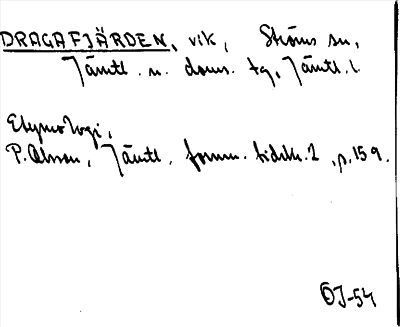 DRAGAFJÄRDEN, vik, Ströms sn,
Jämtl. n. doms. tg, Jämtl. l.
Etymologi,
P. Olsson, Jämtl. fornm. tidskr. 2, p. 159.
ÖJ-54